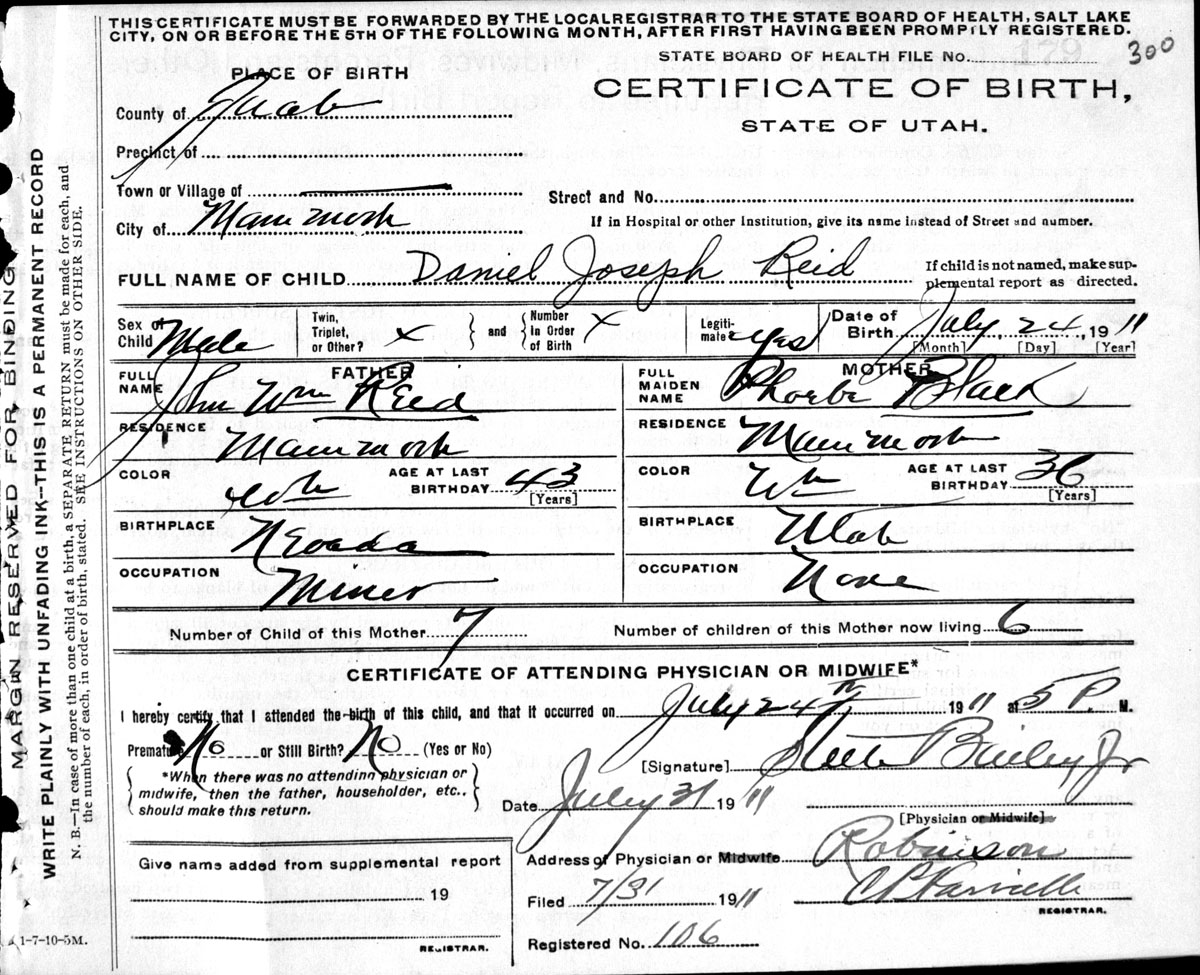 THIS CERTIFICATE MUST BE FORWARDED BY THE LOCAL REGISTRAR TO THE STATE BOARD OF HEALTH, SALT LAKE
CITY, ON OR BEFORE THE 5TH OF THE FOLLOWING MONTH, AFTER FIRST HAVING BEEN PROMPTLY REGISTERED.
STATE BOARD OF HEALTH FILE No. 300
PLACE OF BIRTH
CERTIFICATE OF BIRTH,
STATE OF UTAH.
County of Juab
Precinct of
Town or Village of
Street and No.
City of Mammoth
If in Hospital or other Institution, give its name instead of Street and number.
FULL NAME OF CHILD Daniel Joseph Reid
If child is not named, make sup-
plemental report as directed.
Sex of Child Male
Twin, Triplet, or Other? x
and
Number In Order of Birth x
Legiti-mate? yes
Date of Birth July, 24, 1911
[Month] [Day] [Year]
FATHER
FULL NAME John Wm Reid
RESIDENCE Mammoth
COLOR Wh
AGE AT LAST BIRTHDAY 43
[Years]
BIRTHPLACE Nevada
OCCUPATION Miner
MOTHER
FULL MAIDEN NAME Phoebe Black
RESIDENCE Mammoth
COLOR Wh
AGE AT LAST BIRTHDAY 36
[Years]
BIRTHPLACE Utah
OCCUPATION None
Number of Child of this Mother 7
Number of children of this Mother now living 6
CERTIFICATE OF ATTENDING PHYSICIAN OR MIDWIFE*
I hereby certify that I attended the birth of this child, and that it occurred on July 24th 1911 at 5 P. M.
Premature No or Still Birth? No (Yes or No)
*When there was no attending physician or
midwife, then the father, householder, etc.,
should make this return.
[Signature] Steele Bailey Jr
Date July 31 1911
[Physician or Midwife]
Give name added from supplemental report
19
REGISTRAR.
Address of Physician or Midwife Robinson
Filed 7/31 1911
REGISTRAR.
Registered No. 106
1-7-10-5M.
MARGIN RESERVED FOR BINDING
WRITE PLAINLY WITH UNFADING INK--THIS IS A PERMANENT RECORD
N. B.—In case of more than one child at a birth, a SEPARATE RETURN must be made for each, and
the number of each, in order of birth, stated. SEE INSTRUCTIONS ON OTHER SIDE.